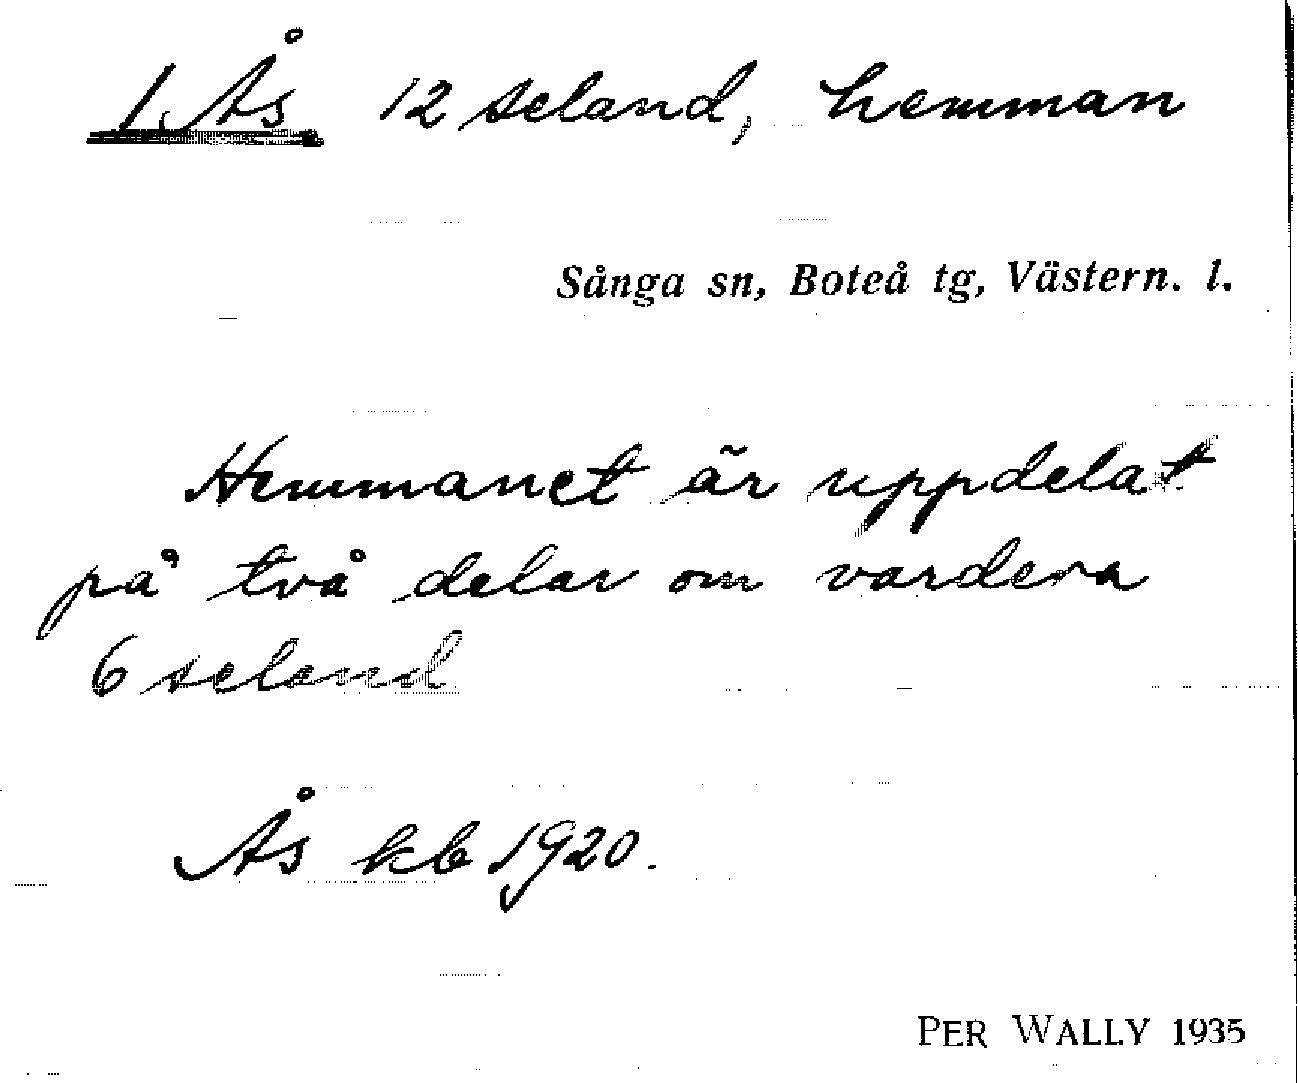 1. Ås 12 seland, hemman
Sånga sn, Boteå tg, Västern. l.
Hemmanet är uppdelat
på två delar om vardera
6 seland
Ås kb 1920.
PER WALLY 1935